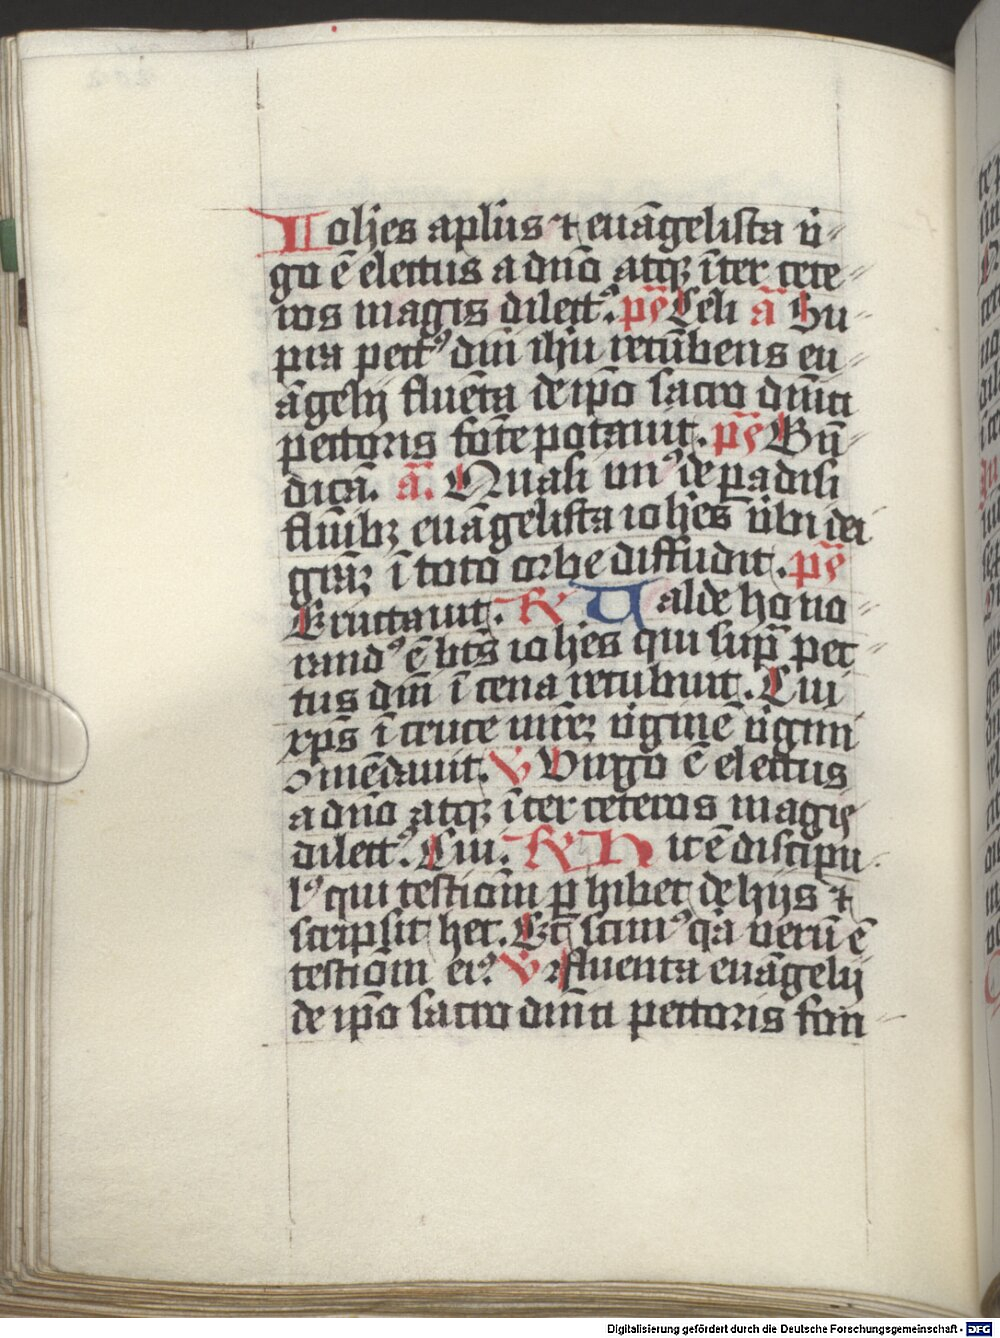 Iohes aplus ⁊ euāgelista ŭ⸗
go ē electus a dn̄o atqꝫ īter cete⸗
ros magis dilectꝰ. ps̄ Celi an̄ Su⸗
pra pectꝰ dn̄i ihū recūbens eu⸗
āgelij fluēta de ip̄o sacro dn̄ici
pectoris fōte potauit. ps̄ Bn̄⸗
dicā. ā. Quasi vnꝰ de ꝑadisi
flūībꝫ euāgelista iohēs ŭbi dei
grāꝫ ī toto orbe diffudit. ps̄
Eructauit. R Ualde hono⸗
randꝰ ē bt̄s iohes qui sup̄ pec⸗
tus dn̄i ī cena recubuit. Cui
xp̄s ī cruce mr̄eꝫ ŭginē ŭgini
ꝯmēdauit. V Virgo ē electus
a dn̄o atqꝫ īter ceteros magis
dilectꝰ. Cui. R Hic ē discipu⸗
lꝰ qui testiōm ꝑhibet de hijs ⁊
scripsit hec. Et scimꝰ qa verū ē
testiōm eiꝰ. V Fluenta euāgelij
de ip̄o sacro dn̄ici pectoris fon⸗
Digitalisierung gefördert durch die Deutsche Forschungsgemeinschaft - DFG